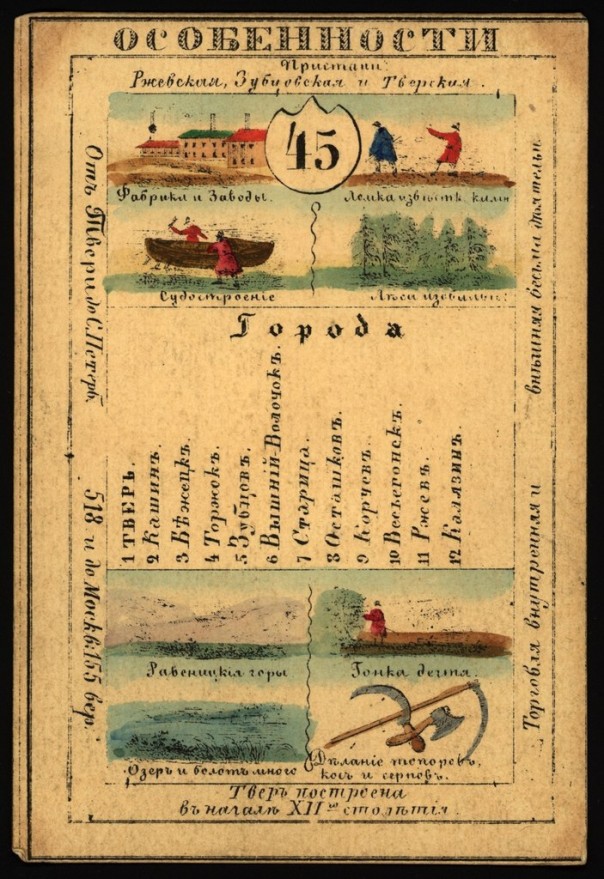 ОСОБЕННОСТИ
Пристани:
Ржевская, Зубцовская и Тверская.
45
Фабрики и Заводы.
Ломка извѣстк. камн
Судостроеніе
Лѣса изобильн:
Города
1 ТВЕРЬ.
2 Кашинъ.
3 Бѣжецкъ.
4 Торжокъ.
5 Зубцовъ.
6 Вышній-Волочокъ.
7 Старица.
8 Осташковъ.
9 Корчевъ.
10 Весьегонскъ.
11 Ржевъ.
12 Калязинъ.
Равеницкія горы
Гонка дегтя.
Озеръ и болотъ много
Дѣланіе топоровъ,
косъ и серповъ.
Тверь построена
въ началѣ XIIго столѣтія.
Отъ Твери до С. Петерб.
518 и до Москв: 155 вер.
Торговля внутренняя и
внѣшняя весьма дѣятельн.